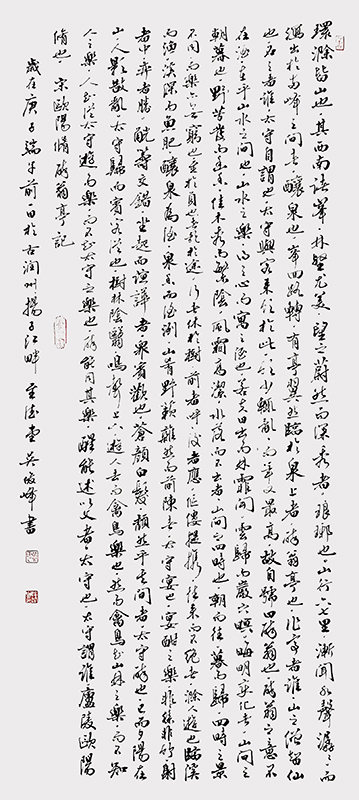 環滁皆山也其西南諸峯林壑尤美望之蔚然而深秀者瑯琊也山行六七里漸聞水聲潺潺而
瀉出於兩峰之間者釀泉也峯回路轉有亭翼然臨於泉上者醉翁亭也作亭者誰山之僧智仙
也名之者誰太守自謂也太守與客來飲於此飲少輒醉而年又最高故自號曰醉翁也醉翁之意不
在酒在乎山水之間也山水之樂得之心而寓之酒也若夫日出而林霏開雲歸而巖穴暝晦明變化者山間之
朝暮也野芳發而幽香佳木秀而繁陰風霜高潔水落而石出者山間之四時也朝而往暮而歸四時之景
不同而樂亦無窮也至於負者歌於途行者休於樹前者呼後者應傴僂提攜往來而不絕者滁人遊也臨溪
而漁溪深而魚肥釀泉為酒泉香而酒洌山肴野蔌雜然而前陳者太守宴也宴酣之樂非絲非竹射
者中弈者勝觥籌交錯坐起而諠譁者衆賓歡也蒼顏白髮頹然乎其間者太守醉也已而夕陽在
山人影散亂太守歸而賓客從也樹林陰翳鳴聲上下遊人去而禽鳥樂也然而禽鳥知山林之樂而不知
人之樂人知從太守遊而樂而不知太守之樂也醉能同其樂醒能述以文者太守也太守謂誰廬陵歐陽
脩也 宋歐陽脩醉翁亭記
歲在庚子端午前一日於古潤州揚子江畔 至德堂吳俊峰書